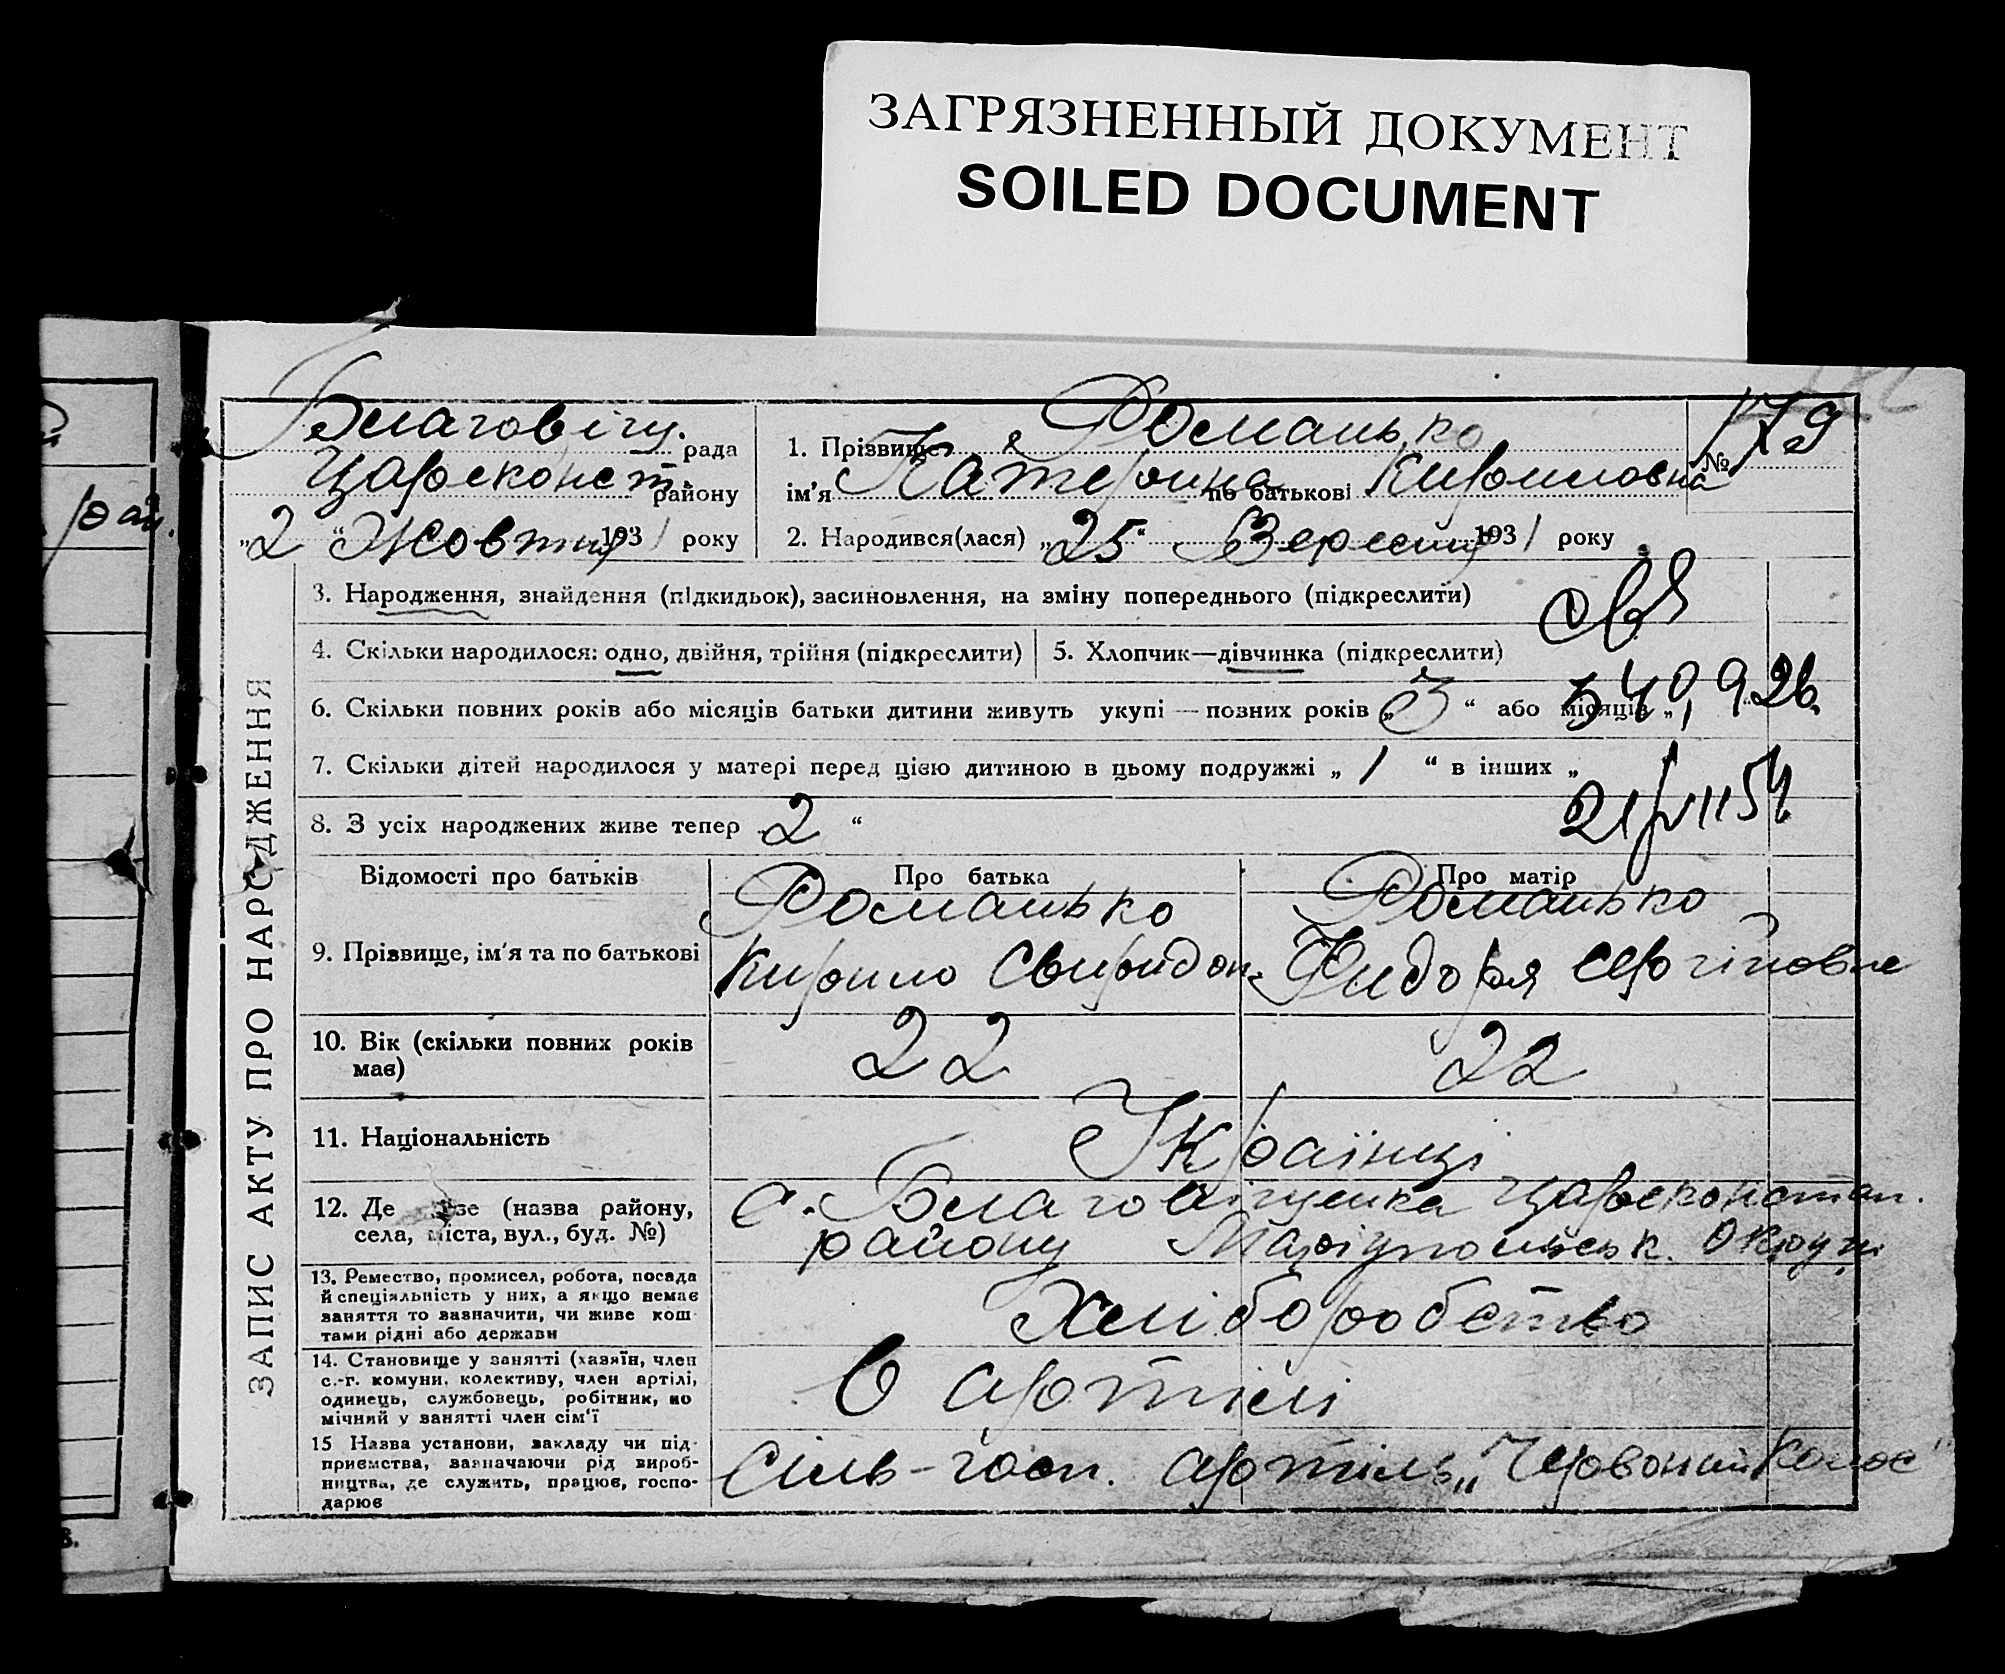 ЗАГРЯЗНЕННЫЙ ДОКУМЕНТ
SOILED DOCUMENT
Благовіщ. рада
Цареконст. району
„2“ Жовтня 1931 року
1. Прізвище Романько
ім'я Катерина по батькові Кириловна
№ 179
2. Народився(лася) „25“ Вересня 1931 року
ЗАПИС АКТУ ПРО НАРОДЖЕННЯ
3. Народження, знайдення (підкидьок), засиновлення, на зміну попереднього (підкреслити)
4. Скільки народилося: одно, двійня, трійня (підкреслити)
5. Хлопчик—дівчинка (підкреслити)
6. Скільки повних років або місяців батьки дитини живуть укупі — повних років „3“ або місяців „
7. Скільки дітей народилося у матері перед цією дитиною в цьому подружжі „1“ в інших „
8. З усіх народжених живе тепер 2 “
Відомості про батьків
Про батька
Про матір
9. Прізвище, ім'я та по батькові
Романько
Кирило Свиридон.
Романько
Фидоря Сергіїовна
10. Вік (скільки повних років має)
22
22
11. Національність
Українці
12. Де (назва району,
села, міста, вул., буд. №)
с. Благовіщенка Цареконстан.
району Маріупольськ. Округи
13. Ремество, промисел, робота, посада
й спеціяльність у них, а якщо немає
заняття то зазначити, чи живе кош-
тами рідні або держави
Хліборобство
14. Становище у занятті (хазяїн, член
с.-г. комуни, колективу, член артілі,
одинець, службовець, робітник, по
мічний у занятті член сім'ї
в артілі
15 Назва установи, закладу чи під-
приємства, зазначаючи рід вироб-
ництва, де служить, працює, госпо-
дарює
Сіль-госп. артіль „Червоний Колос“
рай.